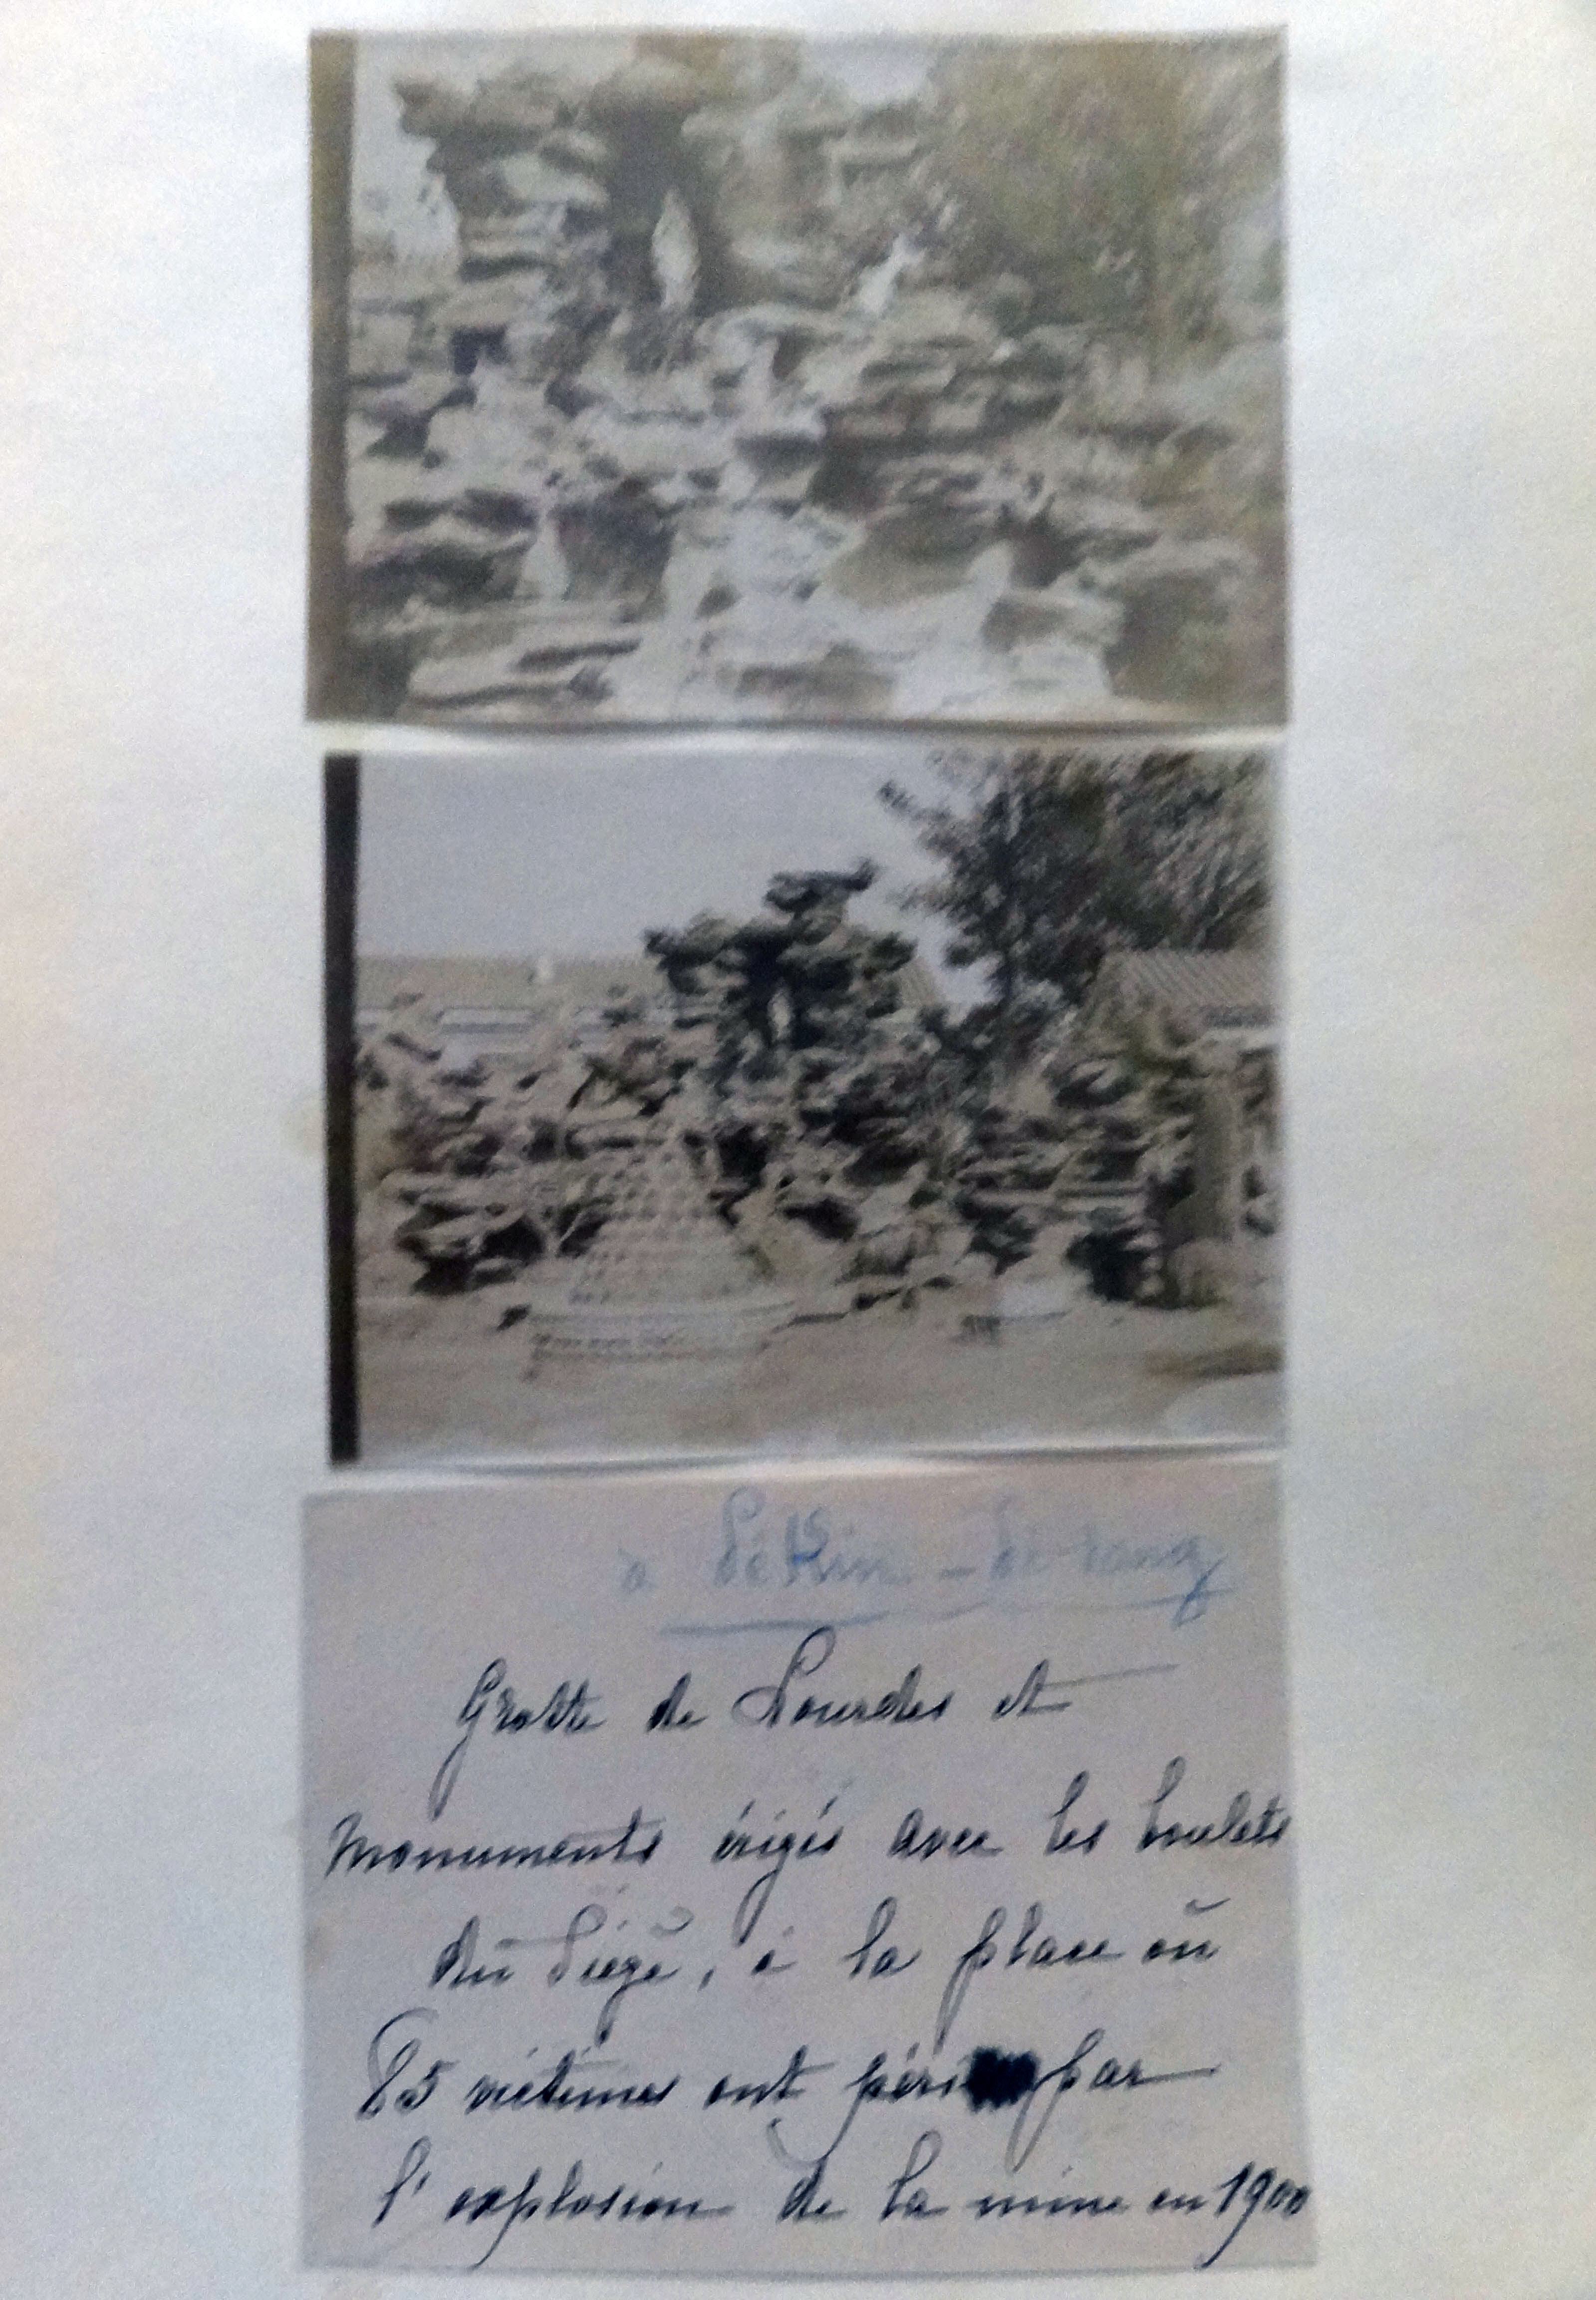 à Pékin -
Grotte de Lourdes et
Monuments érigés avec les boulets
du Siège, à la place où
85 victimes ont péri par
l'explosion de la mine en 1900